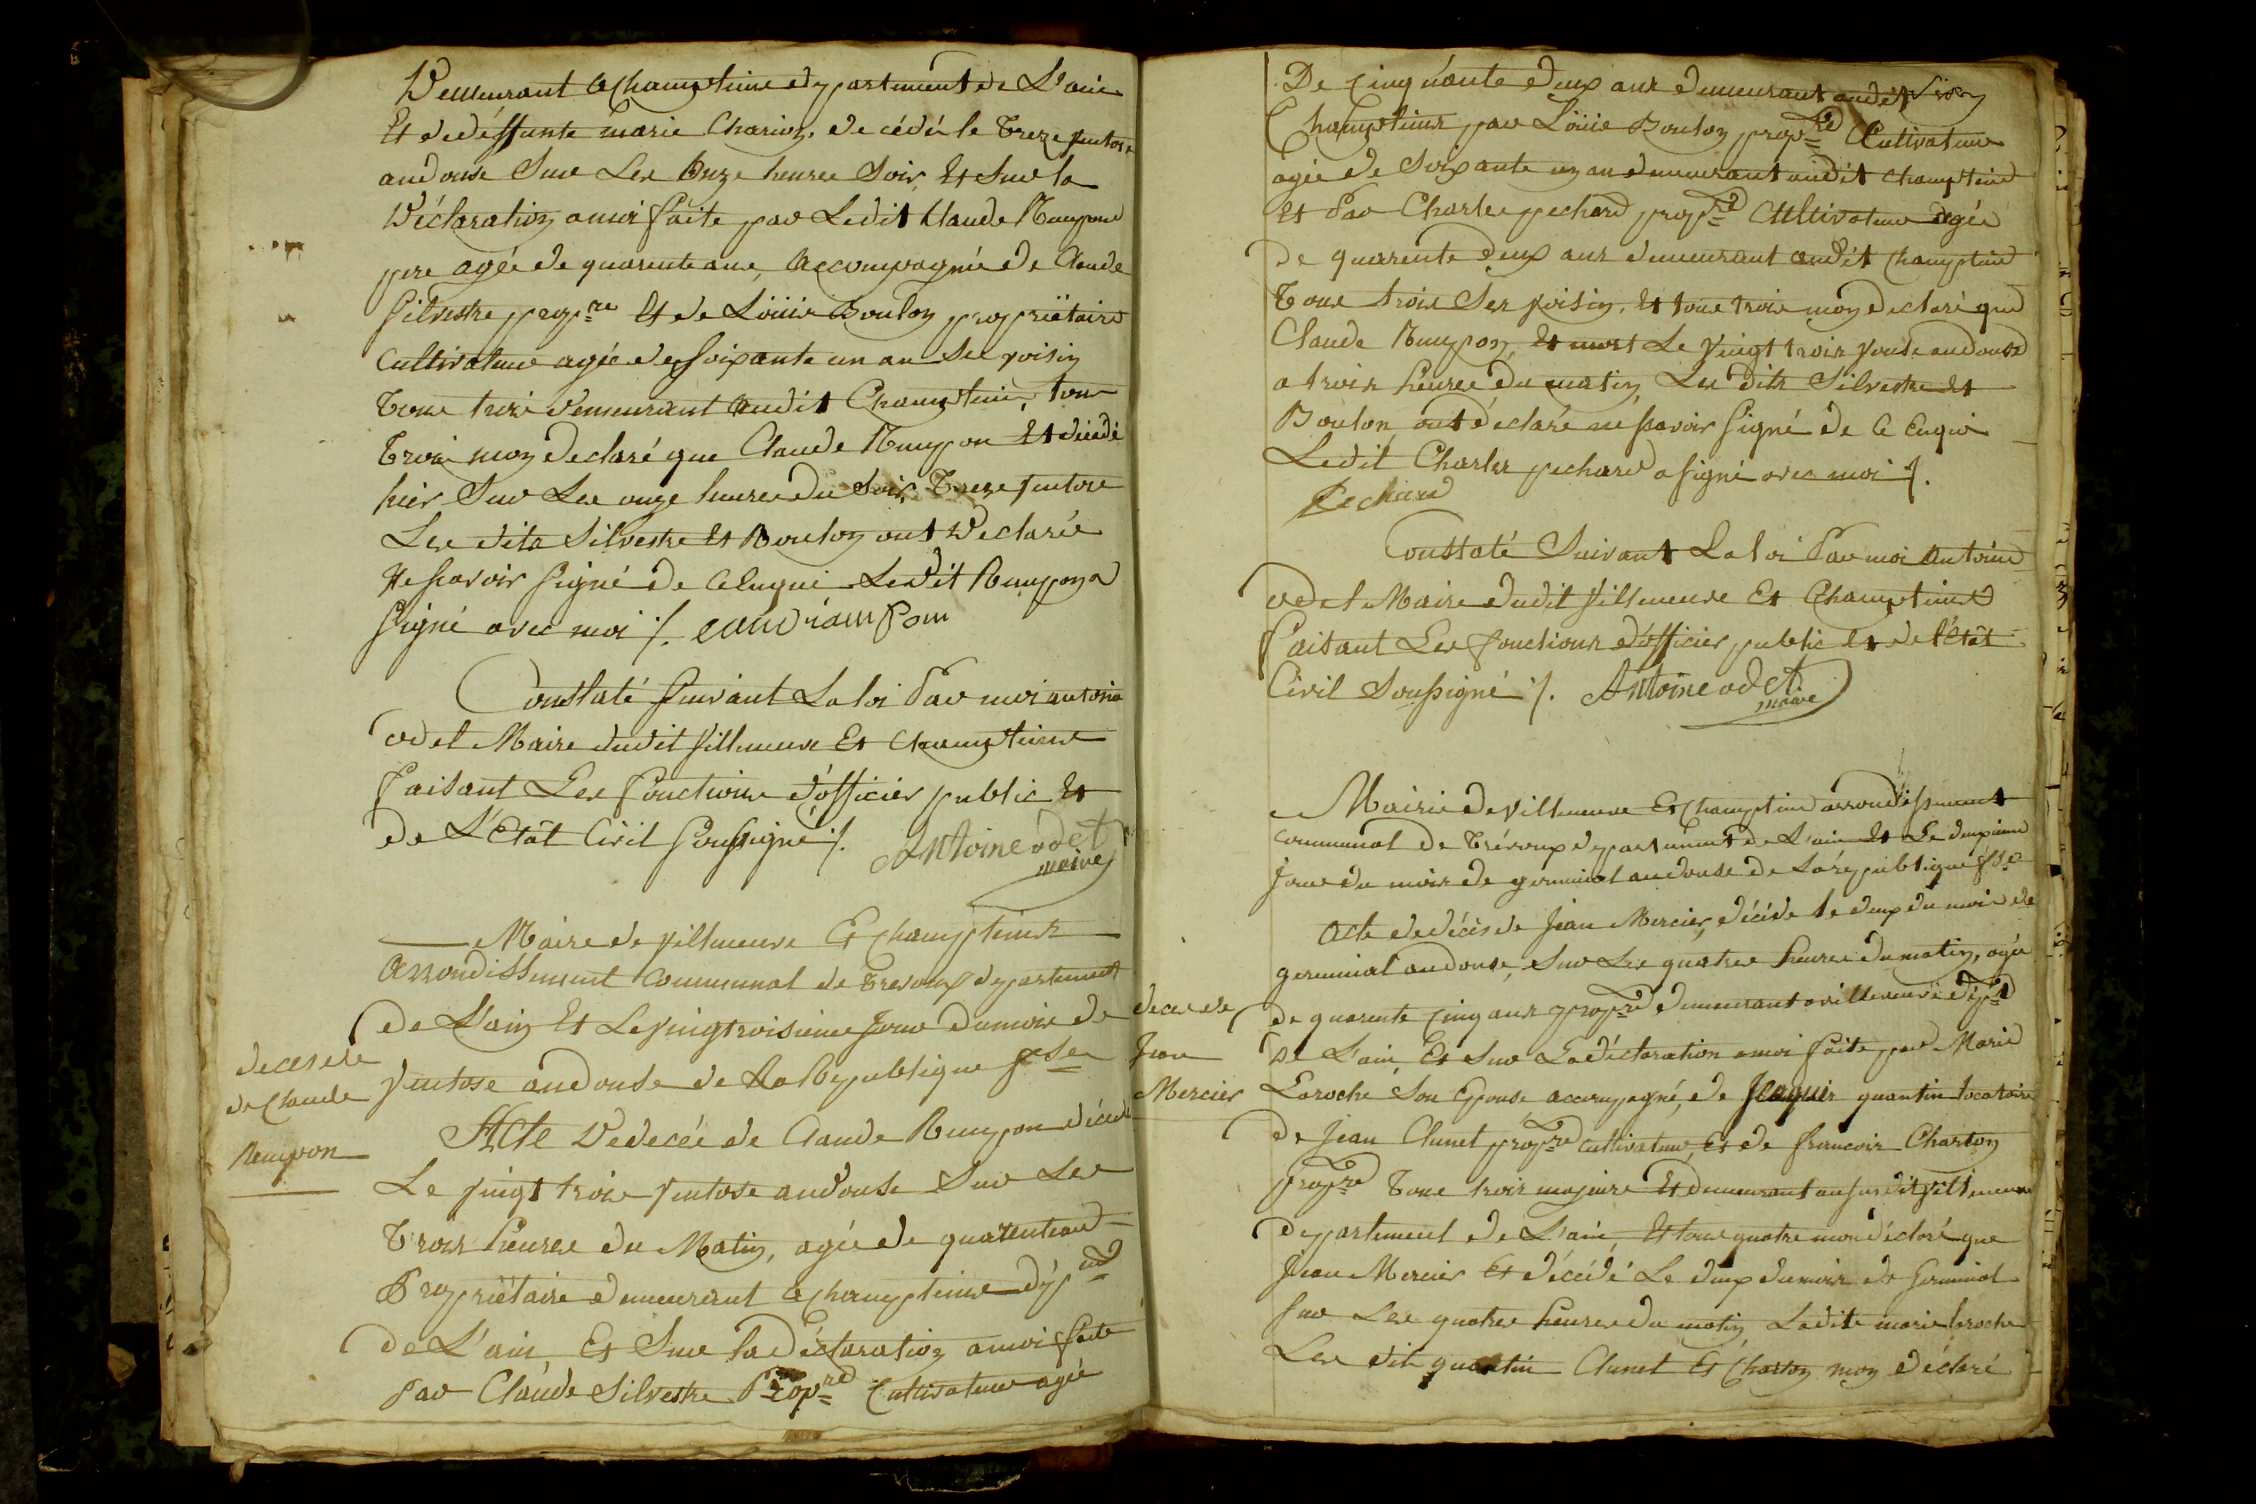 Demeurant a Champteins departement de L'ain
Et de deffunte marie Charion, decédé le treze ventose
an douse Sur Les Onze heures Soir, Et Sur la
Déclaration a moi faite par Ledit Claude Rimpon
pere agée de quarente ans, accompagnée de Claude
Silvestre prop.re Et de Löüis Boulon propriëtaire
Cultivateur agée de Soixante un an Ses voisin
tous trois demeurant audit Champteins, tous
trois mon declaré que Claude Rimpon Et décédé
hier Sur Les onze heures du Soir, Treze ventose
Les dits Silvestre Et Boulon ont Declarée
Ne Savoir Signé de Ce enquis Ledit Rimpon a
Signé avec moi /.
Constaté Suivant La loi Par moi antoine
odet Maire dudit Villeneuve Et Champteins
faisant Les fonctions d'officier public Et
de L'Etât Civil Soussigné /. Antoine odet
maire
Maire de Villeneuve Et Champteins
Arrondissement Communal de Trevoux departement
de L'ain Et Le Vingtroisieme Jour du mois de
Ventose an douse de La Republique fse
deces de
de Claude
Rimpon
Acte De decée de Claude Rimpon décédé
Le vingt trois Ventose an douse Sur Les
trois heures du Matin, agée de quarente ans
Propriëtaire demeurant a Champteins dép
de L'ain, Et Sur la Déclaration a moi faite
Par Claude Silvestre Prop.re Cultivateur agée
De Cinquante deux ans demeurant audit
Champteins par Löüis Boulon prop.re Cultivateur
agée de Soixante un an demeurant audit Champteins
Et Par Charles pechard prop.re Cultivateur agée
de quarente deux ans demeurant audit Champteins
tous trois Ses voisin, Et tous trois mon declaré que
Claude Rimpon, Et mort Le vingt trois vantose an douse
a trois heures du matin, Les dits Silvestre Et
Boulon, ont déclaré ne Savoir Signé de Ce Enquis
Ledit Charles pechard a Signé avec moi /.
Pechard
Constaté Suivant La loi Par moi antoine
odet Maire dudit Villeneuve Et Champteins
Faisant Les fonctions d'officier public Et de l'Etât
Civil Soussigné /. Antoine odet
maire
Mairie de Villeneuve Et Champteins arrondissement
communal de Trévoux departement de L'ain Et Le deuxieme
Jour du mois de germinal an douse de La republique fse
deces de
Jean
Mercier
Acte de décés de Jean Mercier, décédé le deux du mois de
germinal an douse, Sur Les quatres heures du matin, agée
de quarente Cinq ans prop.re demeurant a villeneuve dép
de L'ain, Et Sur La déclaration a moi faite par Marie
Laroche Son Epouse accompagné, de Jaques quantin locataire
de Jean Clunet prop.re Cultivateur, Et de francois Charton
prop.re tous trois majeurs Et demeurant au susdit villeneuve
departement de L'ain Et tous quatre mon déclaré que
Jean Mercier Et décédé Le deux du mois de Germinal
Sur Les quatres heures du matin, Ladite marie laroche
Les dit quantin Clunet Et Charton mon déclaré